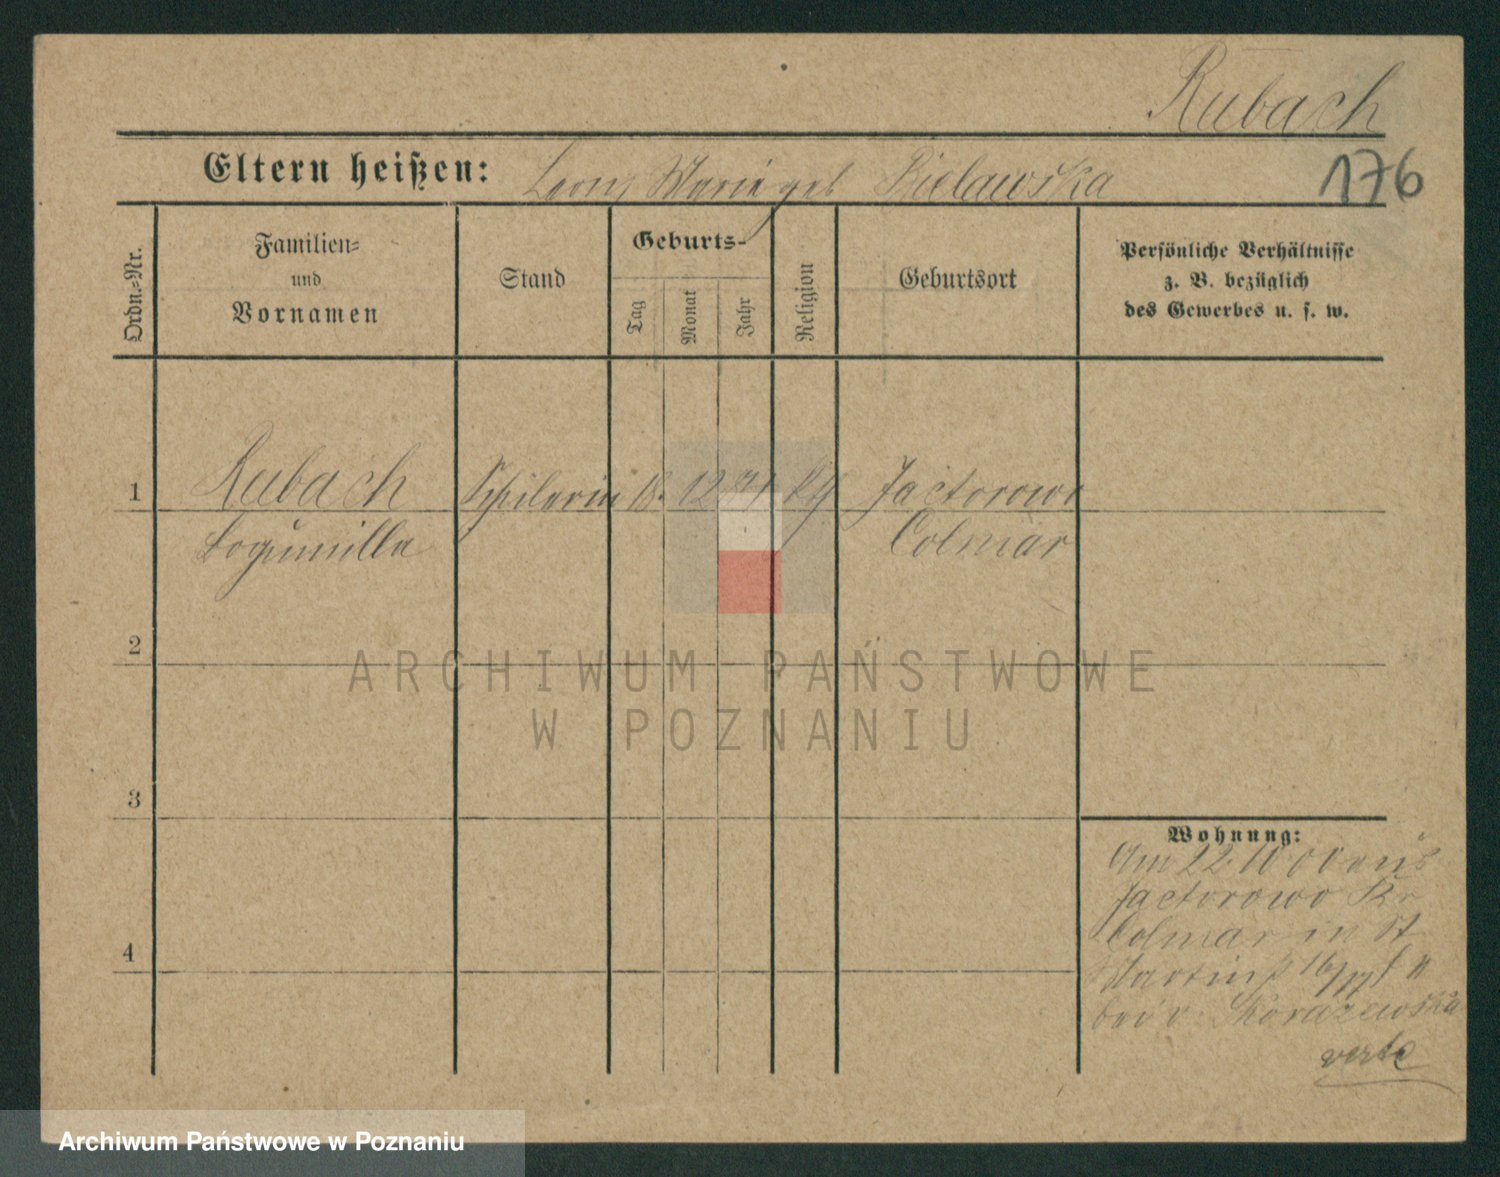 Rubach
Eltern heißen: Leon, Marie geb Bielawska
176
Ordn.-Nr.
Familien-
und
Vornamen
Stand
Geburts-
Tag
Monat
Jahr
Religion
Geburtsort
Persönliche Verhältnisse
z. B. bezüglich
des Gewerbes u. s. w.
1
Rubach
Schilerin
18.
12
kth
Jactorowo
Bogumilla
Colmar
2
ARCHIWUM PAŃSTWOWE
W POZNANIU
3
Wohnung:
Am 22 10 00 aus
Jactorowo Kr
Colmar in St
Martinst 16/17
bei v. Skorazewska
verte
4
Archiwum Państwowe w Poznaniu